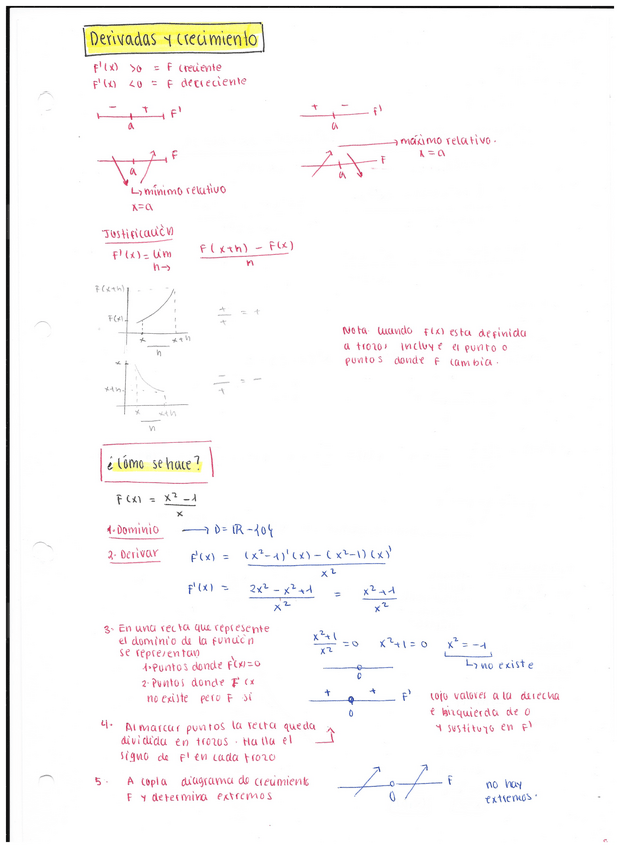 Derivadas y crecimiento
F'(x) >0 = F creciente
F'(x) <0 = F decreciente
- + F'
a
+ - F'
a
F
a
↳ mínimo relativo
x=a
F
a
→ máximo relativo.
x=a
Justificación
F'(x) = lim F(x+h) - F(x)
h→ h
F(x+h)
F(x)
x x+h
h
+/+ = +
x
x+h
x x+h
h
-/+ = -
Nota cuando F(x) esta definida
a trozos incluye el punto o
puntos donde F cambia.
¿Cómo se hace?
F(x) = x² -1
x
1. Dominio → D= IR - {0}
2. Derivar F'(x) = (x²-1)'(x) - (x²-1)(x)'
x²
F'(x) = 2x² - x² +1 = x² +1
x² x²
3. En una recta que represente
el dominio de la función
se representan
1. Puntos donde F'(x)=0
2. Puntos donde F'(x
no existe pero F sí
x²+1 =0 x²+1=0 x² = -1
x²
↳ no existe
0
+ + F'
0
cojo valores a la derecha
e izquierda de 0
y sustituyo en F'
4. Al marcar puntos la recta queda
dividida en trozos. Halla el
signo de F' en cada trozo
5. A copia diagrama de crecimiento
F y determina extremos
F
0
no hay
extremos.